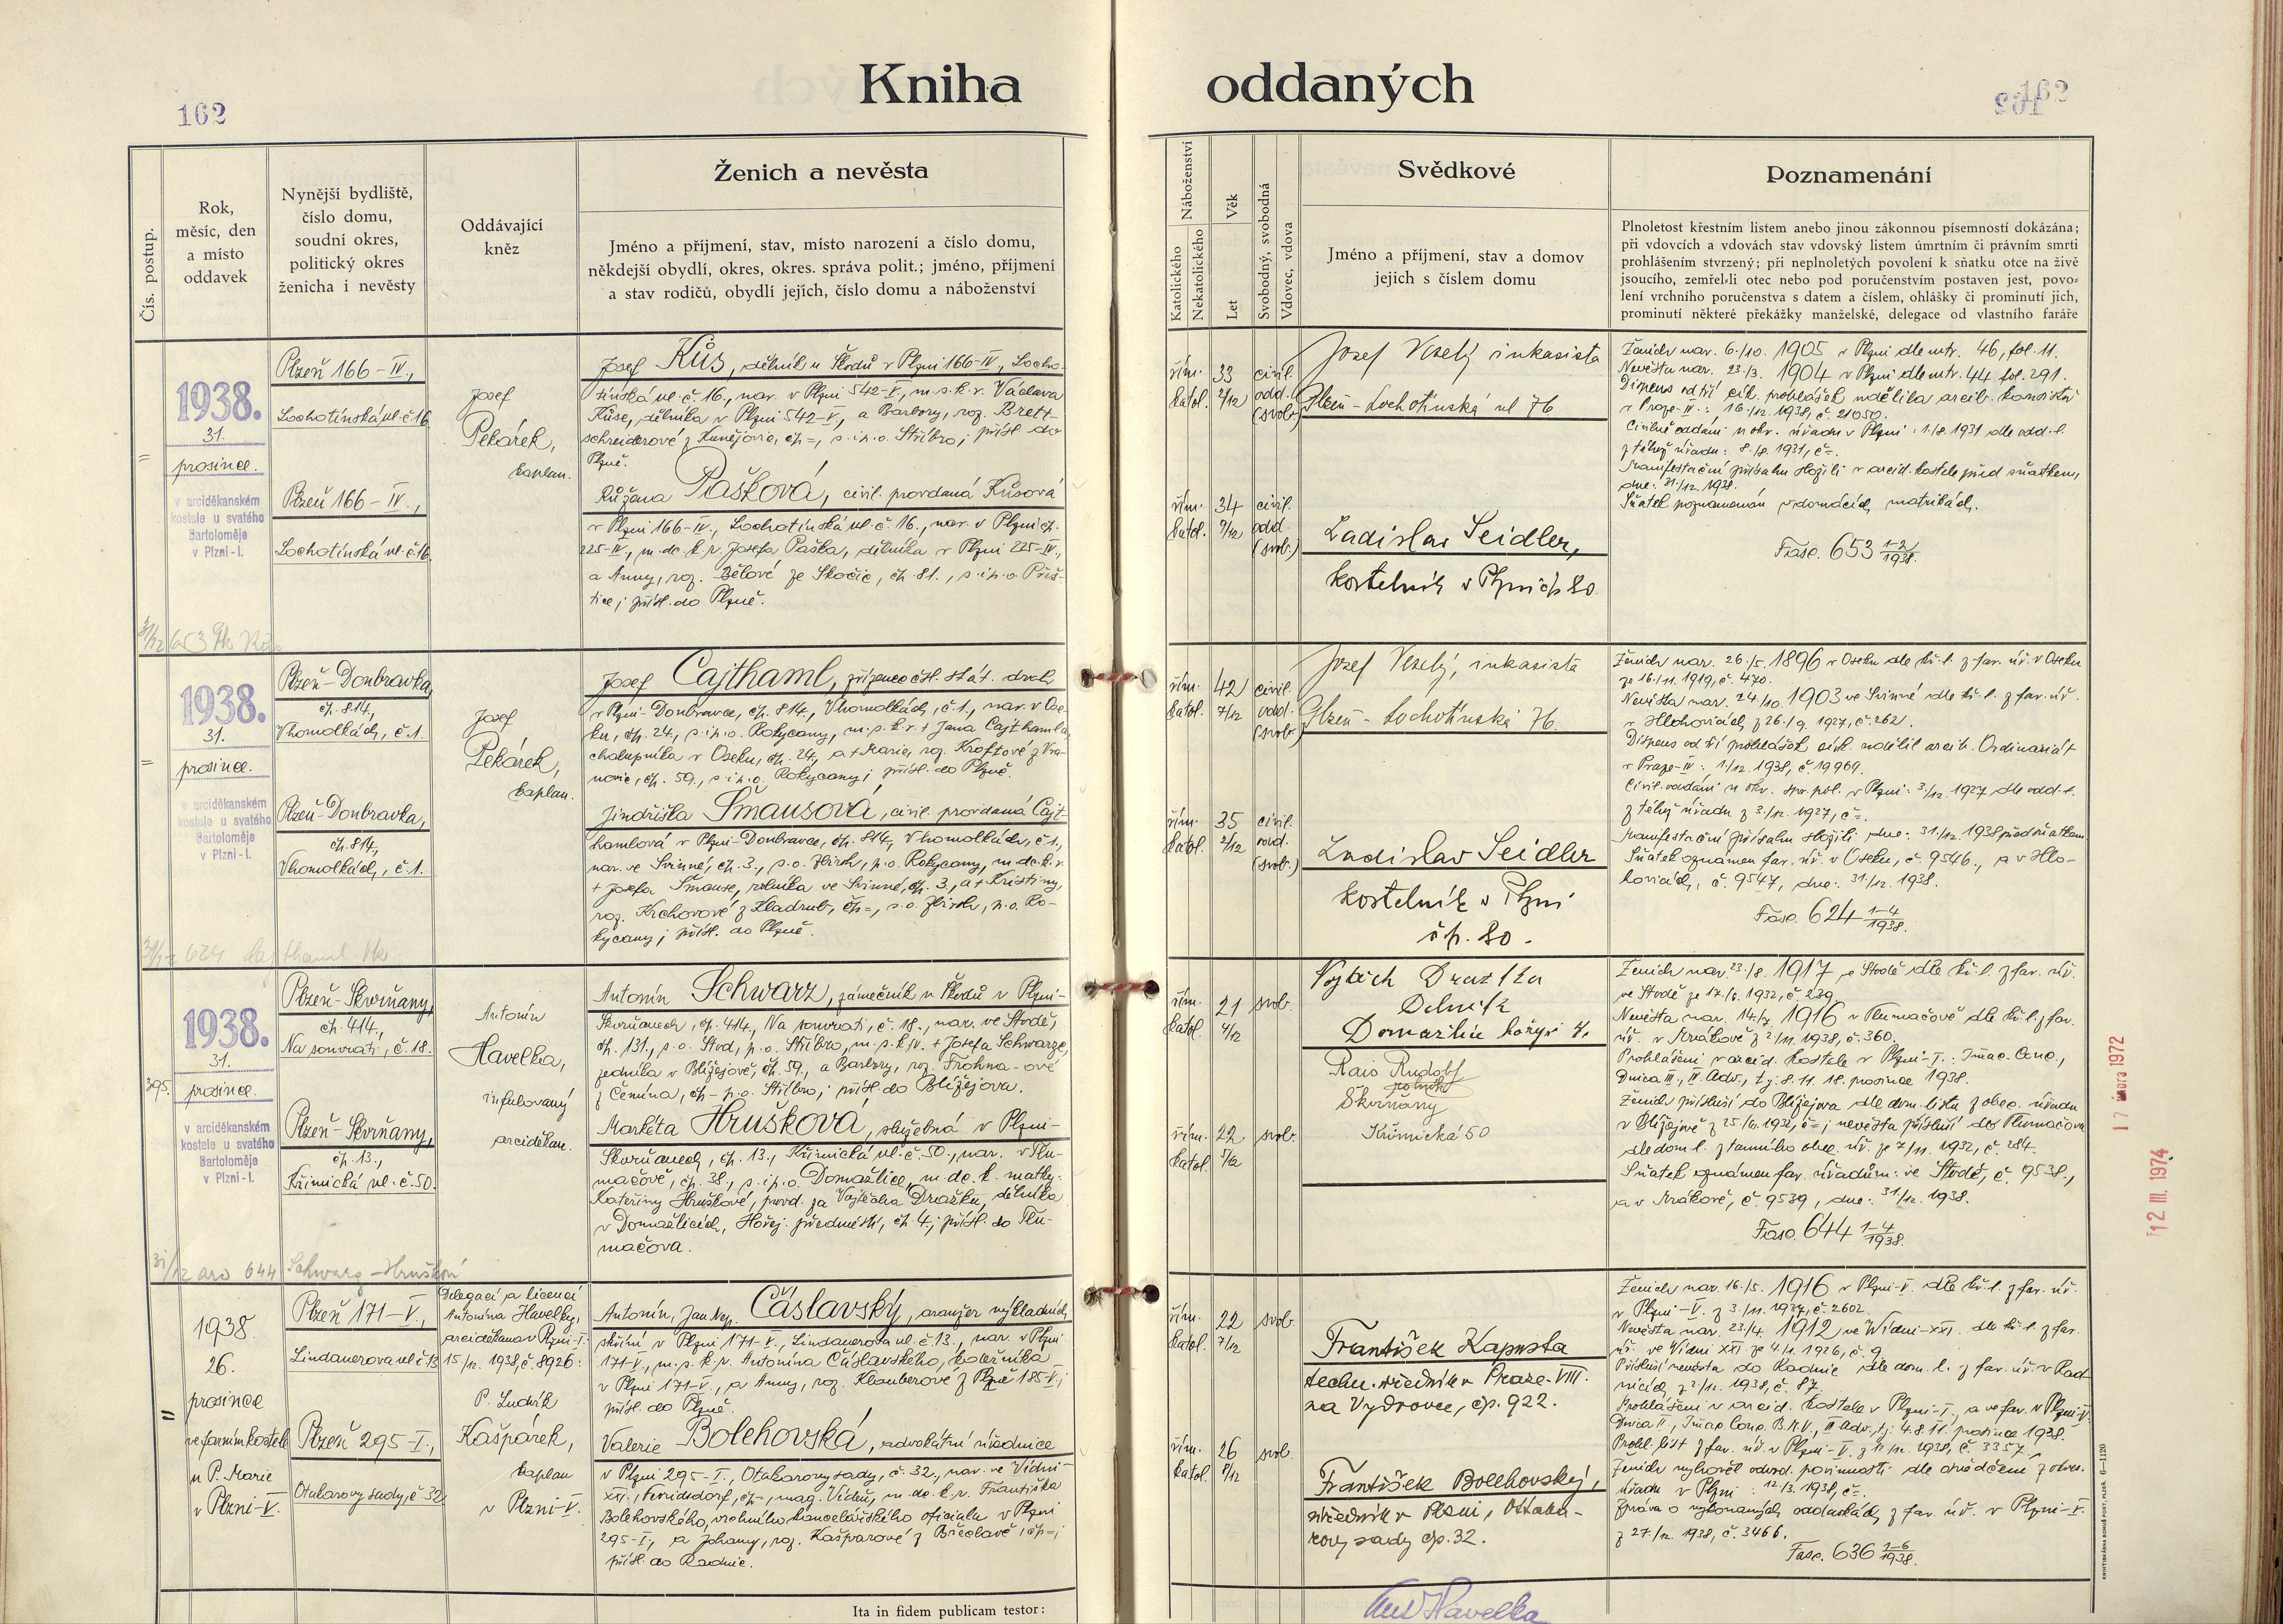 Kniha oddaných
162
162
Čís. postup.
Rok,
měsíc, den
a místo
oddavek
Nynější bydliště,
číslo domu,
soudní okres,
politický okres
ženicha i nevěsty
Oddávající
kněz
Ženich a nevěsta
Jméno a příjmení, stav, místo narození a číslo domu,
někdejší obydlí, okres, okres. správa polit.; jméno, příjmení
a stav rodičů, obydlí jejich, číslo domu a náboženství
Náboženství
Katolického
Nekatolického
Věk
Let
Svobodný, svobodná
Vdovec, vdova
Svědkové
Jméno a příjmení, stav a domov
jejich s číslem domu
Poznamenání
Plnoletost křestním listem anebo jinou zákonnou písemností dokázána;
při vdovcích a vdovách stav vdovský listem úmrtním či právním smrti
prohlášením stvrzený; při neplnoletých povolení k sňatku otce na živě
jsoucího, zemřel-li otec nebo pod poručenstvím postaven jest, povo-
lení vrchního poručenstva s datem a číslem, ohlášky či prominutí jich,
prominutí některé překážky manželské, delegace od vlastního faráře
1938.
31.
prosince.
v arciděkanském
kostele u svatého
Bartoloměje
v Plzni-I.
Plzeň 166-IV.,
Lochotínská ul. č. 16
Plzeň 166-IV.,
Lochotínská ul. č. 16.
Josef
Pekárek,
kaplan.
Josef Kůs, dělník u Škodů v Plzni 166-IV., Locho-
tínská ul. č. 16., nar. v Plzni 542-V., m. s. k. v. Václava
Kůse, dělníka v Plzni 542-V., a Barbory, roz. Brett-
schneiderové z Kunějovic, čp =, s. i p. o. Stříbro; přísl. do
Plzně.
Růžena Pašková, civil. provdaná Kůsová
v Plzni 166-IV., Lochotínská ul. č. 16., nar. v Plzni čp.
225-IV., m. dc. k. v. Josefa Paška, dělníka v Plzni 225-IV.,
a Anny, roz. Bělové ze Skočic, čp. 81., s. i p. o. Přeš-
tice; přísl. do Plzně.
řím. 33 civil.
katol. 2/12 odd.
(svob.)
řím. 34 civil.
katol. 9/12 odd.
(svob.)
Josef Veselý inkasista
Plzeň - Lochotínská ul 76
Ladislav Seidler,
kostelník v Plzni čp 80.
Ženich nar. 6./10. 1905 v Plzni dle mtr. 46, fol. 11.
Nevěsta nar. 23./3. 1904 v Plzni dle mtr. 44 fol. 291.
Dispens od tří cík. prohlášek udělila arcib. konsistoř
v Praze-IV.: 16./12. 1938, č. 21050.
Civilně oddáni u okr. úřadu v Plzni: 1./8. 1931 dle odd. l.
z téhož úřadu: 8./8. 1931, č =.
Manifestační přísahu složili v arcid. kostele před sňatkem,
dne: 31./12. 1938.
Sňatek poznamenán v domácích matrikách.
Fasc. 653 1-2/1938.
1938.
31.
prosince.
v arciděkanském
kostele u svatého
Bartoloměje
v Plzni-I.
Plzeň-Doubravka,
čp. 814,
V homolkách, č. 1.
Plzeň-Doubravka,
čp. 814,
V homolkách, č. 1.
Josef
Pekárek,
kaplan.
Josef Cajthaml, zřízenec čsl. stát. drah
v Plzni-Doubravce, čp. 814., V homolkách, č. 1., nar. v Ose-
ku, čp. 24., s. i p. o. Rokycany, m. s. k. v. + Jana Cajthamla,
chalupníka v Oseku, čp. 24, a + Marie, roz. Kroftové z Vra-
novic, čp. 59., s. i p. o. Rokycany; přísl. do Plzně.
Jindřiška Šmausová, civil. provdaná Cajt-
hamlová v Plzni-Doubravce, čp. 814, V homolkách, č. 1.,
nar. ve Svinné, čp. 3., s. o. Zbiroh, p. o. Rokycany, m. dc. k. v.
+ Josefa Šmause, rolníka ve Svinné, čp. 3., a + Kristiny,
roz. Krchovové z Kladrub, čp =, s. o. Zbiroh, p. o. Ro-
kycany; přísl. do Plzně.
řím. 42 civil.
katol. 7/12 odd.
(svob.)
řím. 35 civil.
katol. 2/12 odd.
(svob.)
Josef Veselý, inkasista
Plzeň - Lochotínská 76.
Ladislav Seidler
kostelník v Plzni
čp. 80.
Ženich nar. 26./5. 1896 v Oseku dle kř. l. z far. úř. v Oseku
ze 16./11. 1919, č. 470.
Nevěsta nar. 24./10. 1903 ve Svinné dle kř. l. z far. úř.
v Hlohovicích z 26./9. 1927, č. 262.
Dispens od tří prohlášek círk. udělil arcib. Ordinariát
v Praze-IV: 1./12. 1938, č. 19969.
Civil. oddáni u okr. spr. pol. v Plzni: 3./12. 1927 dle odd. l.
z téhož úřadu z 3./12. 1927, č =.
Manifestační přísahu složili dne: 31./12. 1938 před sňatkem
Sňatek oznámen far. úř. v Oseku, č. 9546., a v Hlo-
hovicích, č. 9547, dne: 31./12. 1938.
Fasc. 624 1-4/1938.
395.
1938.
31.
prosince.
v arciděkanském
kostele u svatého
Bartoloměje
v Plzni-I.
Plzeň-Skvrňany,
čp. 414.,
Na souvrati, č. 18.
Plzeň-Skvrňany,
čp. 13.,
Křimická ul. č. 50.
Antonín
Havelka,
infulovaný
arciděkan.
Antonín Schwarz, zámečník u Škodů v Plzni-
Skvrňanech, čp. 414., Na souvrati, č. 18., nar. ve Stodě,
čp. 131., s. o. Stod, p. o. Stříbro, m. s. k. v. + Josefa Schwarze,
zedníka v Blížejově, čp. 59., a Barbory, roz. Frohna-ové
z Čemína, čp - p. o. Stříbro; přísl. do Blížejova.
Markéta Hrušková, služebná v Plzni-
Skvrňanech, čp. 13., Křimická ul. č. 50., nar. v Tlu-
mačově, čp. 38., s. i p. o. Domažlice, m. dc. k. matky:
Kateřiny Hruškové, provd. za Vojtěcha Dražku, dělníka
v Domažlicích, Hořej. předměstí, čp 4.; přísl. do Tlu-
mačova.
řím. 21 svob.
katol. 4/12
řím. 22 svob.
katol. 5/12
Vojtěch Dražka
Delník
Domažlice hořejší 4.
Rais Rudolf
Skvrňany
Křimická 50
Ženich nar. 23./8. 1917 ve Stodě dle kř. l. z far. úř.
ve Stodě ze 17./6. 1932, č. 239.
Nevěsta nar. 14./7. 1916 v Tlumačově dle kř. l. z far.
úř. v Mrákově z 2/11. 1938, č. 360.
Prohlášeni v arcid. kostele v Plzni-I.: Imac. Conc.,
Dnica III., IV. Adv., t. j. 8. 11. 18. prosince 1938.
Ženich přísluší do Blížejova dle dom. listu z obec. úřadu
v Blížejově z 25./6. 1932, č =; nevěsta přísluší do Tlumačova
dle dom. l. z tamního obec. úř. ze 7./11. 1932, č. 284.
Sňatek oznámen far. úřadům: ve Stodě, č. 9538.,
a v Mrákově, č. 9539, dne: 31./12. 1938.
Fasc. 644 1-4/1938.
17 února 1972
12 III. 1974
1938.
26.
prosince
ve farním kostele
u P. Marie
v Plzni-V.
Plzeň 171-V.,
Lindauerova ul č 13
Plzeň 295-I.,
Otakarovy sady, č 32
Delegací a licencí
Antonína Havelky,
arciděkana v Plzni-I.
15./12. 1938, č. 8926:
P. Ludvík
Kašpárek,
kaplan
v Plzni-V.
Antonín, Jan Nep. Čáslavský, aranžer výkladních
skříní v Plzni 171-V., Lindauerova ul. č. 13., nar. v Plzni
171-V., m. s. k. v. Antonína Čáslavského, koželníka
v Plzni 171-V., a Anny, roz. Klauberové z Plzně 185-V.;
přísl. do Plzně.
Valerie Bolehovská, advokátní úřednice
v Plzni 295-I., Otakarovy sady, č. 32., nar. ve Vídni-
XXI., čp -, mag. Vídeň, m. dc. k. v. Františka
Bolehovského, vrchního kancelářského oficiala v Plzni
295-I., a Johany, roz. Kašparové z Břeclavě, čp =;
přísl. do Radnic.
řím. 22 svob.
katol. 7/12
řím. 26 svob.
katol. 8/12
František Kapusta
techn. úředník v Praze-VIII.
na Vydrovce, čp. 922.
František Bolehovský,
úředník v Plzni, Ottaka-
rovy sady čp. 32.
Ženich nar. 16./5. 1916 v Plzni-V. dle kř. l. z far. úř.
v Plzni-V. z 3./11. 1937, č. 2602.
Nevěsta nar. 23./4. 1912 ve Vídni-XXI. dle kř. l. z far.
úř. ve Vídni XXI. ze 4./1. 1926, č. 9.
Přísluší nevěsta do Radnic dle dom. l. z far. úř. v Rad-
nicích z 2./12. 1938, č. 87.
Prohlášeni v arcid. kostele v Plzni-I., a ve far. v Plzni-V.
Dnica II., Imac. Conc. B. M. V., III Adv., t. j. 4. 8. 11. prosince 1938.
Prohl. list z far. úř. v Plzni-V. z 11./12. 1938, č. 3357.
Ženich vyhověl odvod. povinnosti dle osvědčení z okres.
úřadu v Plzni: 12./3. 1938, č =.
Zpráva o vykonaných oddavkách z far. úř. v Plzni-V.
z 27./12. 1938, č. 3466.
Fasc. 636 1-6/1938.
Ita in fidem publicam testor:
Ant Havelka
KNIHTISKÁRNA BOHUŠ PORT, PLZEŇ. 6—1120